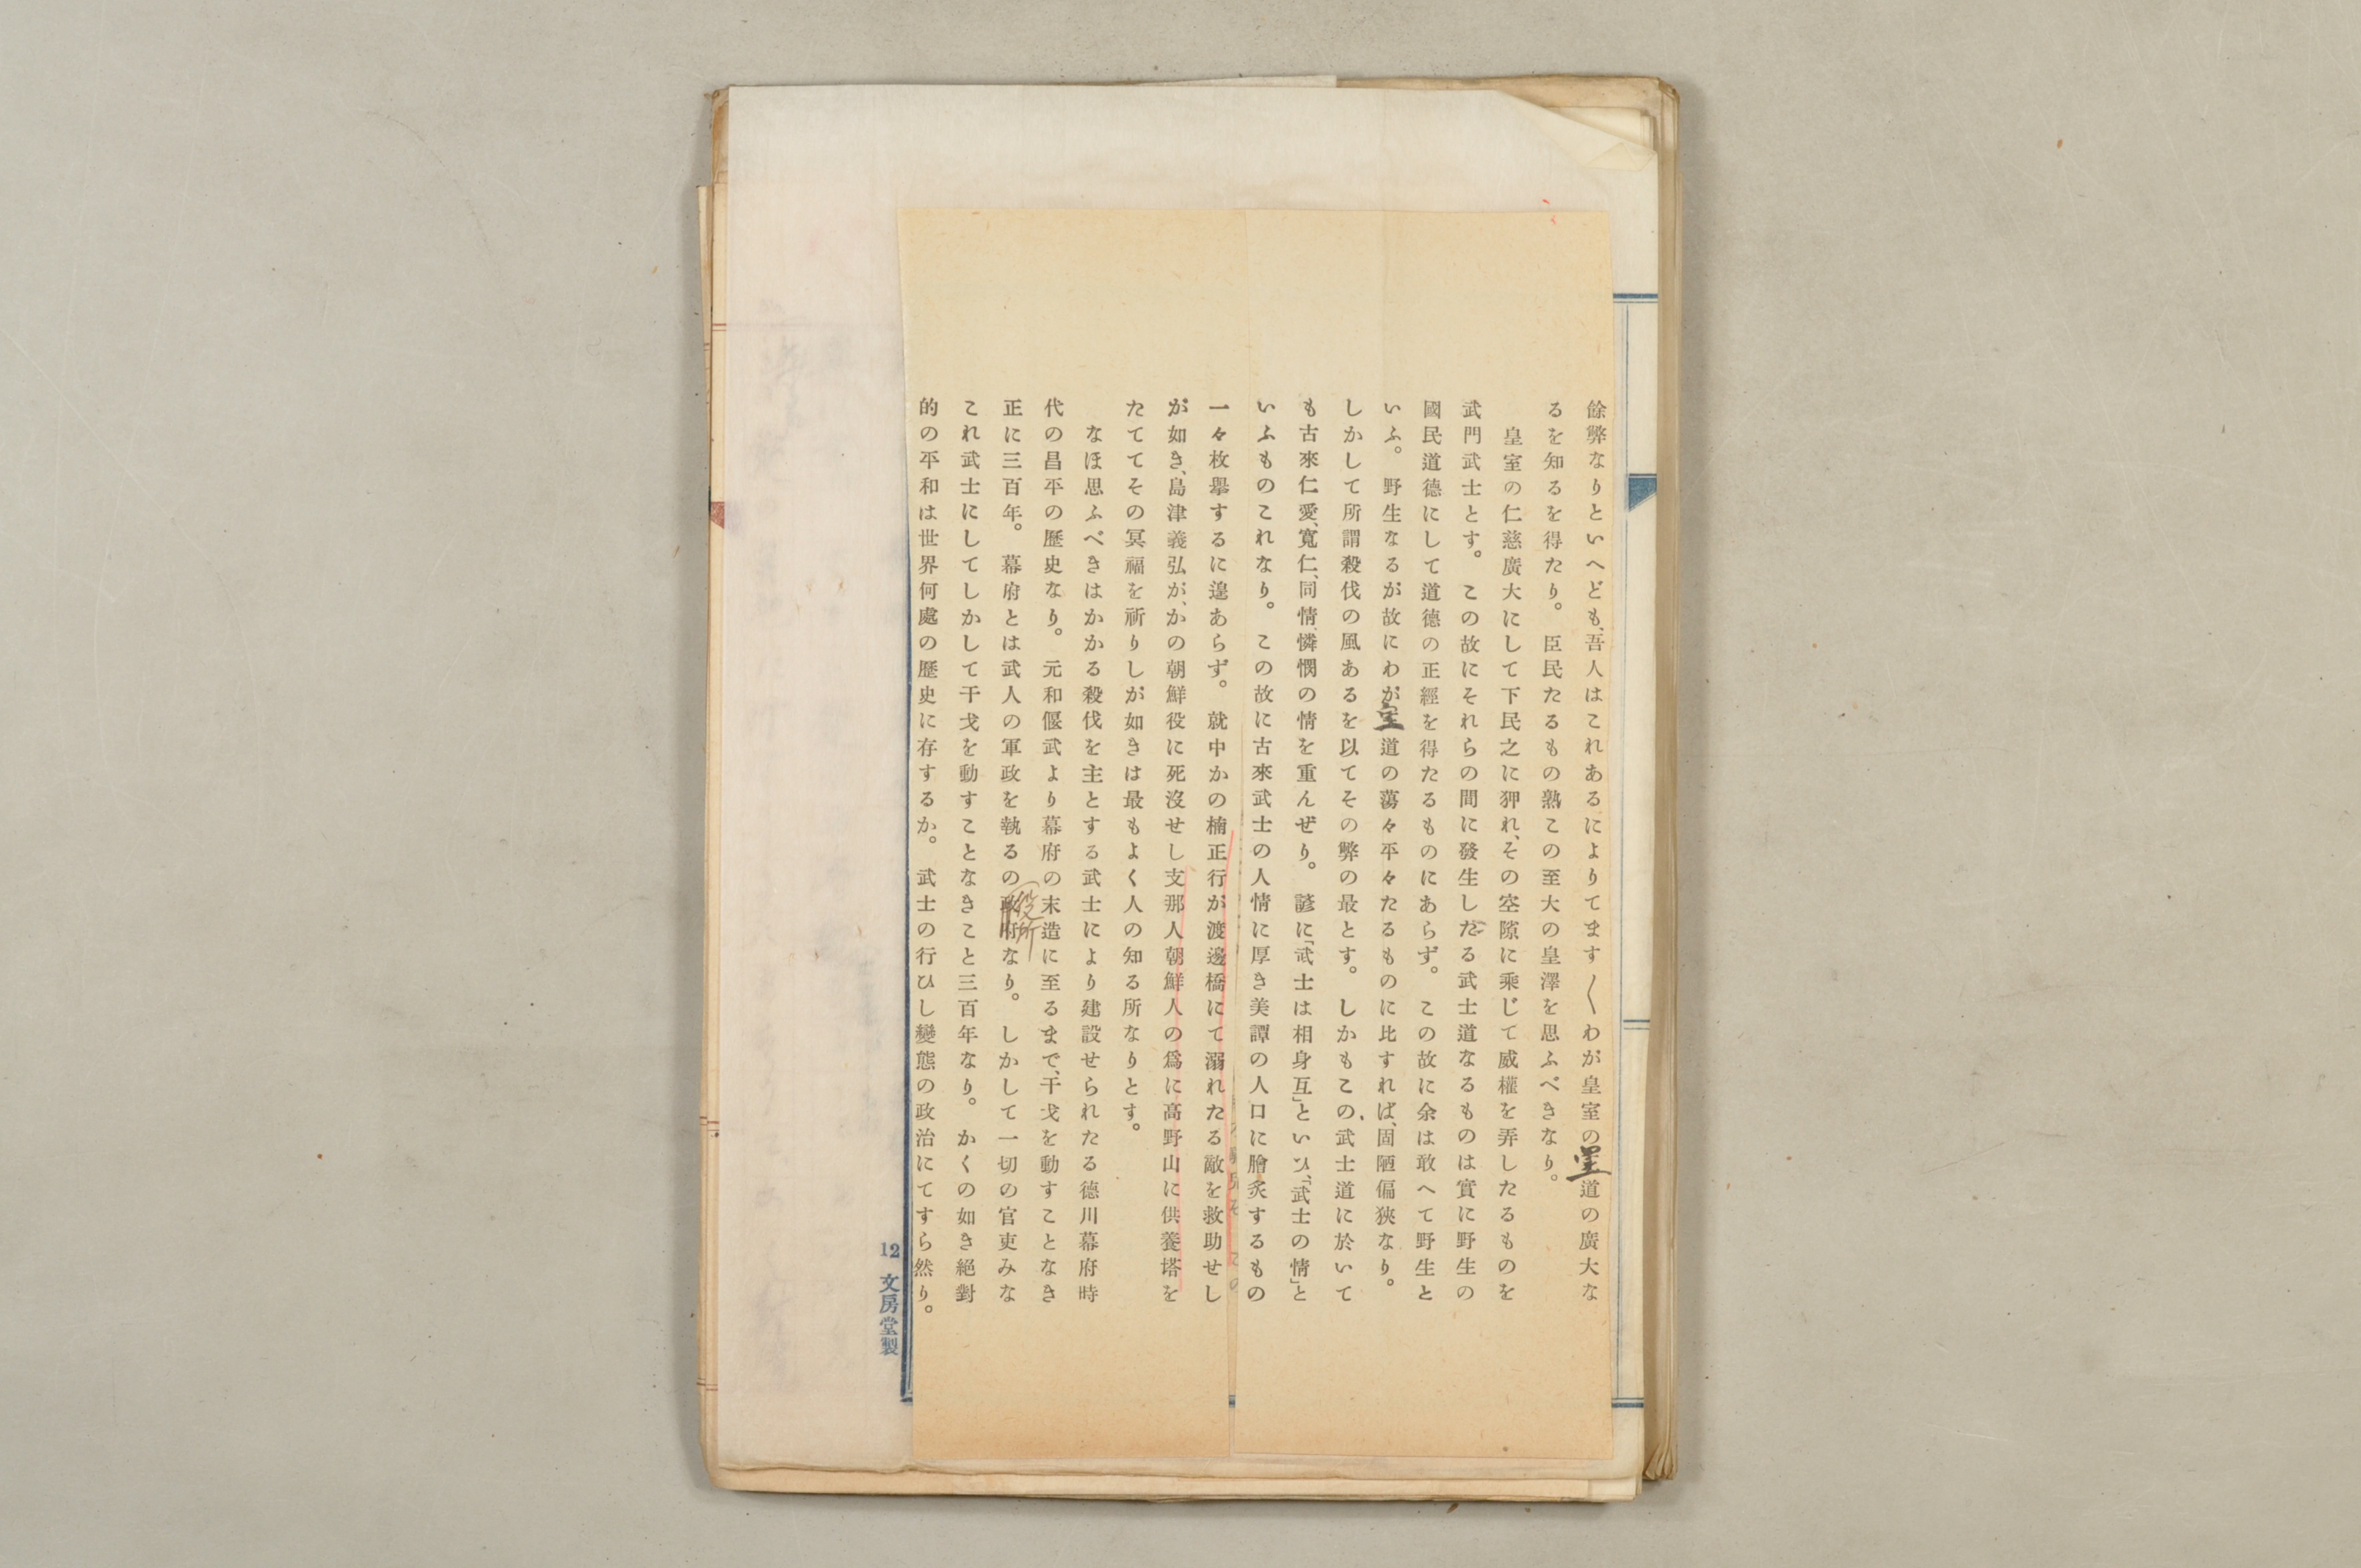 餘弊なりといへども、吾人はこれあるによりてます〱わが皇室の皇道の廣大な
るを知るを得たり。臣民たるもの熟この至大の皇澤を思ふべきなり。
皇室の仁慈廣大にして下民之に狎れ、その空隙に乘じて威權を弄したるものを
武門武士とす。この故にそれらの間に發生したる武士道なるものは實に野生の
國民道德にして道德の正經を得たるものにあらず。この故に余は敢へて野生と
いふ。野生なるが故にわが皇道の蕩々平々たるものに比すれば、固陋偏狹なり。
しかして所謂殺伐の風あるを以てその弊の最とす。しかもこの武士道に於いて
も古來仁愛、寬仁、同情、憐憫の情を重んぜり。諺に「武士は相身互」といひ、「武士の情」と
いふものこれなり。この故に古來武士の人情に厚き美譚の人口に膾炙するもの
一々枚擧するに遑あらず。就中かの楠正行が渡邊橋にて溺れたる敵を救助せし
が如き、島津義弘が、かの朝鮮役に死沒せし支那人朝鮮人の爲に高野山に供養塔を
たててその冥福を祈りしが如きは最もよく人の知る所なりとす。
なほ思ふべきはかかる殺伐を主とする武士により建設せられたる德川幕府時
代の昌平の歷史なり。元和偃武より幕府の末造に至るまで、干戈を動すことなき
正に三百年。幕府とは武人の軍政を執るの政府なり。しかして一切の官吏みな
役所
これ武士にしてしかして干戈を動すことなきこと三百年なり。かくの如き絕對
的の平和は世界何處の歷史に存するか。武士の行ひし變態の政治にてすら然り。
12 文房堂製